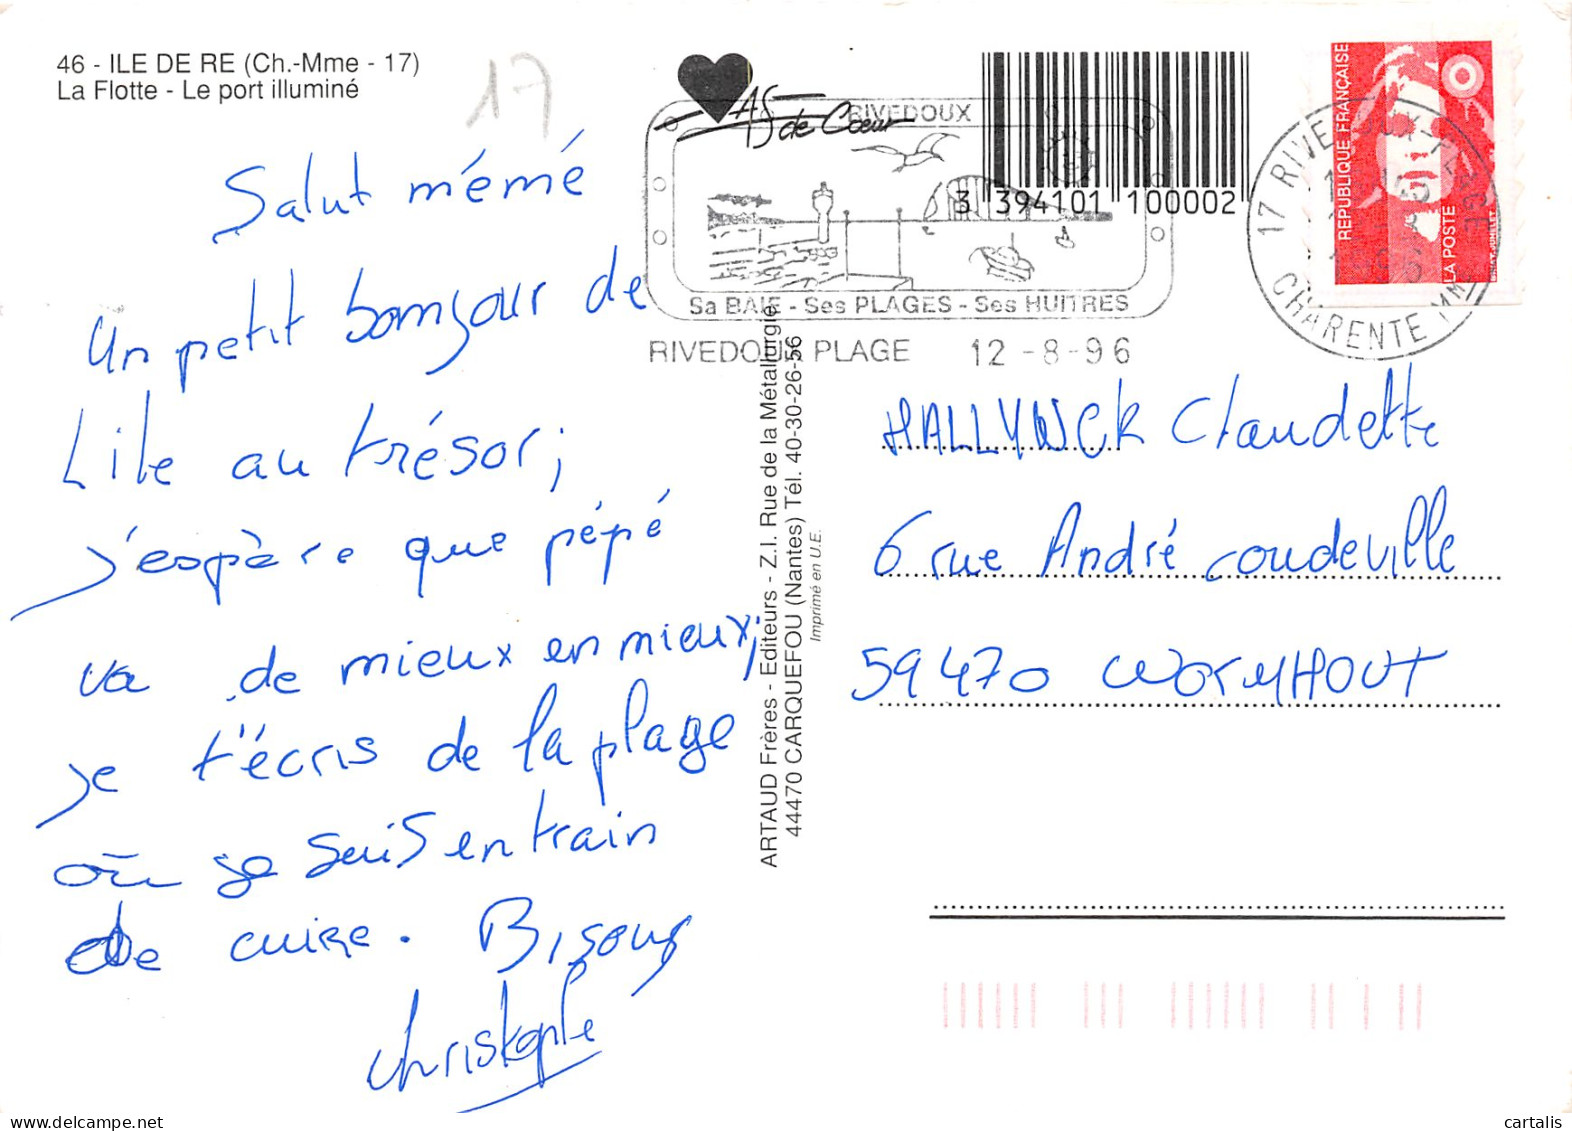 46 - ILE DE RE (Ch.-Mme - 17)
La Flotte - Le port illuminé
17
Salut mémé
Un petit bonjour de
L'ile au trésor ;
j'espère que pépé
va de mieux en mieux,
je t'écris de la plage
où je suis en train
de cuire. Bisous
Christophe
AS de Cœur
RIVEDOUX
3 394101 100002
Sa BAIE - Ses PLAGES - Ses HUITRES
RIVEDOUX PLAGE 12 -8-96
REPUBLIQUE FRANÇAISE
LA POSTE
CHARENTE MME
ARTAUD Frères - Editeurs - Z.I. Rue de la Métallurgie
44470 CARQUEFOU (Nantes) Tél. 40-30-26-56
Imprimé en U.E.
HALLYNCK Claudette
6 rue André coudeville
59470 WORMHOUT
cartalis
delcampe.net